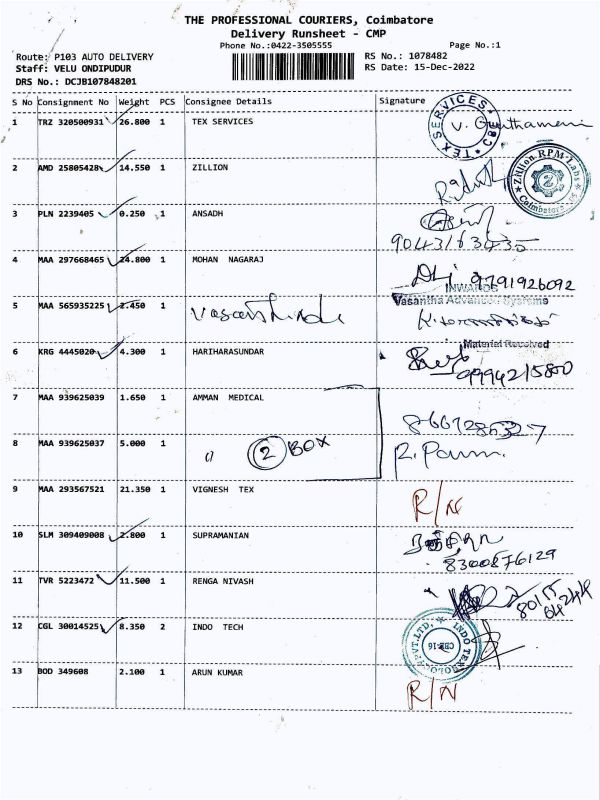 THE PROFESSIONAL COURIERS, Coimbatore
Delivery Runsheet - CMP
Phone No.:0422-3505555 Page No.:1
Route: P103 AUTO DELIVERY RS No.: 1078482
Staff: VELU ONDIPUDUR RS Date: 15-Dec-2022
DRS No.: DCJB107848201
S No Consignment No Weight PCS Consignee Details Signature
1 TRZ 320500931 26.800 1 TEX SERVICES TEX SERVICES CBE
2 AMD 25805428 14.550 1 ZILLION Zillion RPM Labs Coimbatore
3 PLN 2239405 0.250 1 ANSADH
4 MAA 297668465 24.800 1 MOHAN NAGARAJ 9791926092
INWARDS
5 MAA 565935225 2.450 1 Vasantha Advanced Systems
Material Received
6 KRG 4445020 4.300 1 HARIHARASUNDAR 9994215800
7 MAA 939625039 1.650 1 AMMAN MEDICAL
8 MAA 939625037 5.000 1 2 BOX
9 MAA 293567521 21.350 1 VIGNESH TEX R/N
10 SLM 309409008 2.800 1 SUPRAMANIAN
8300876129
11 TVR 5223472 11.500 1 RENGA NIVASH
12 CGL 30014525 8.350 2 INDO TECH
13 BOD 349608 2.100 1 ARUN KUMAR R/N